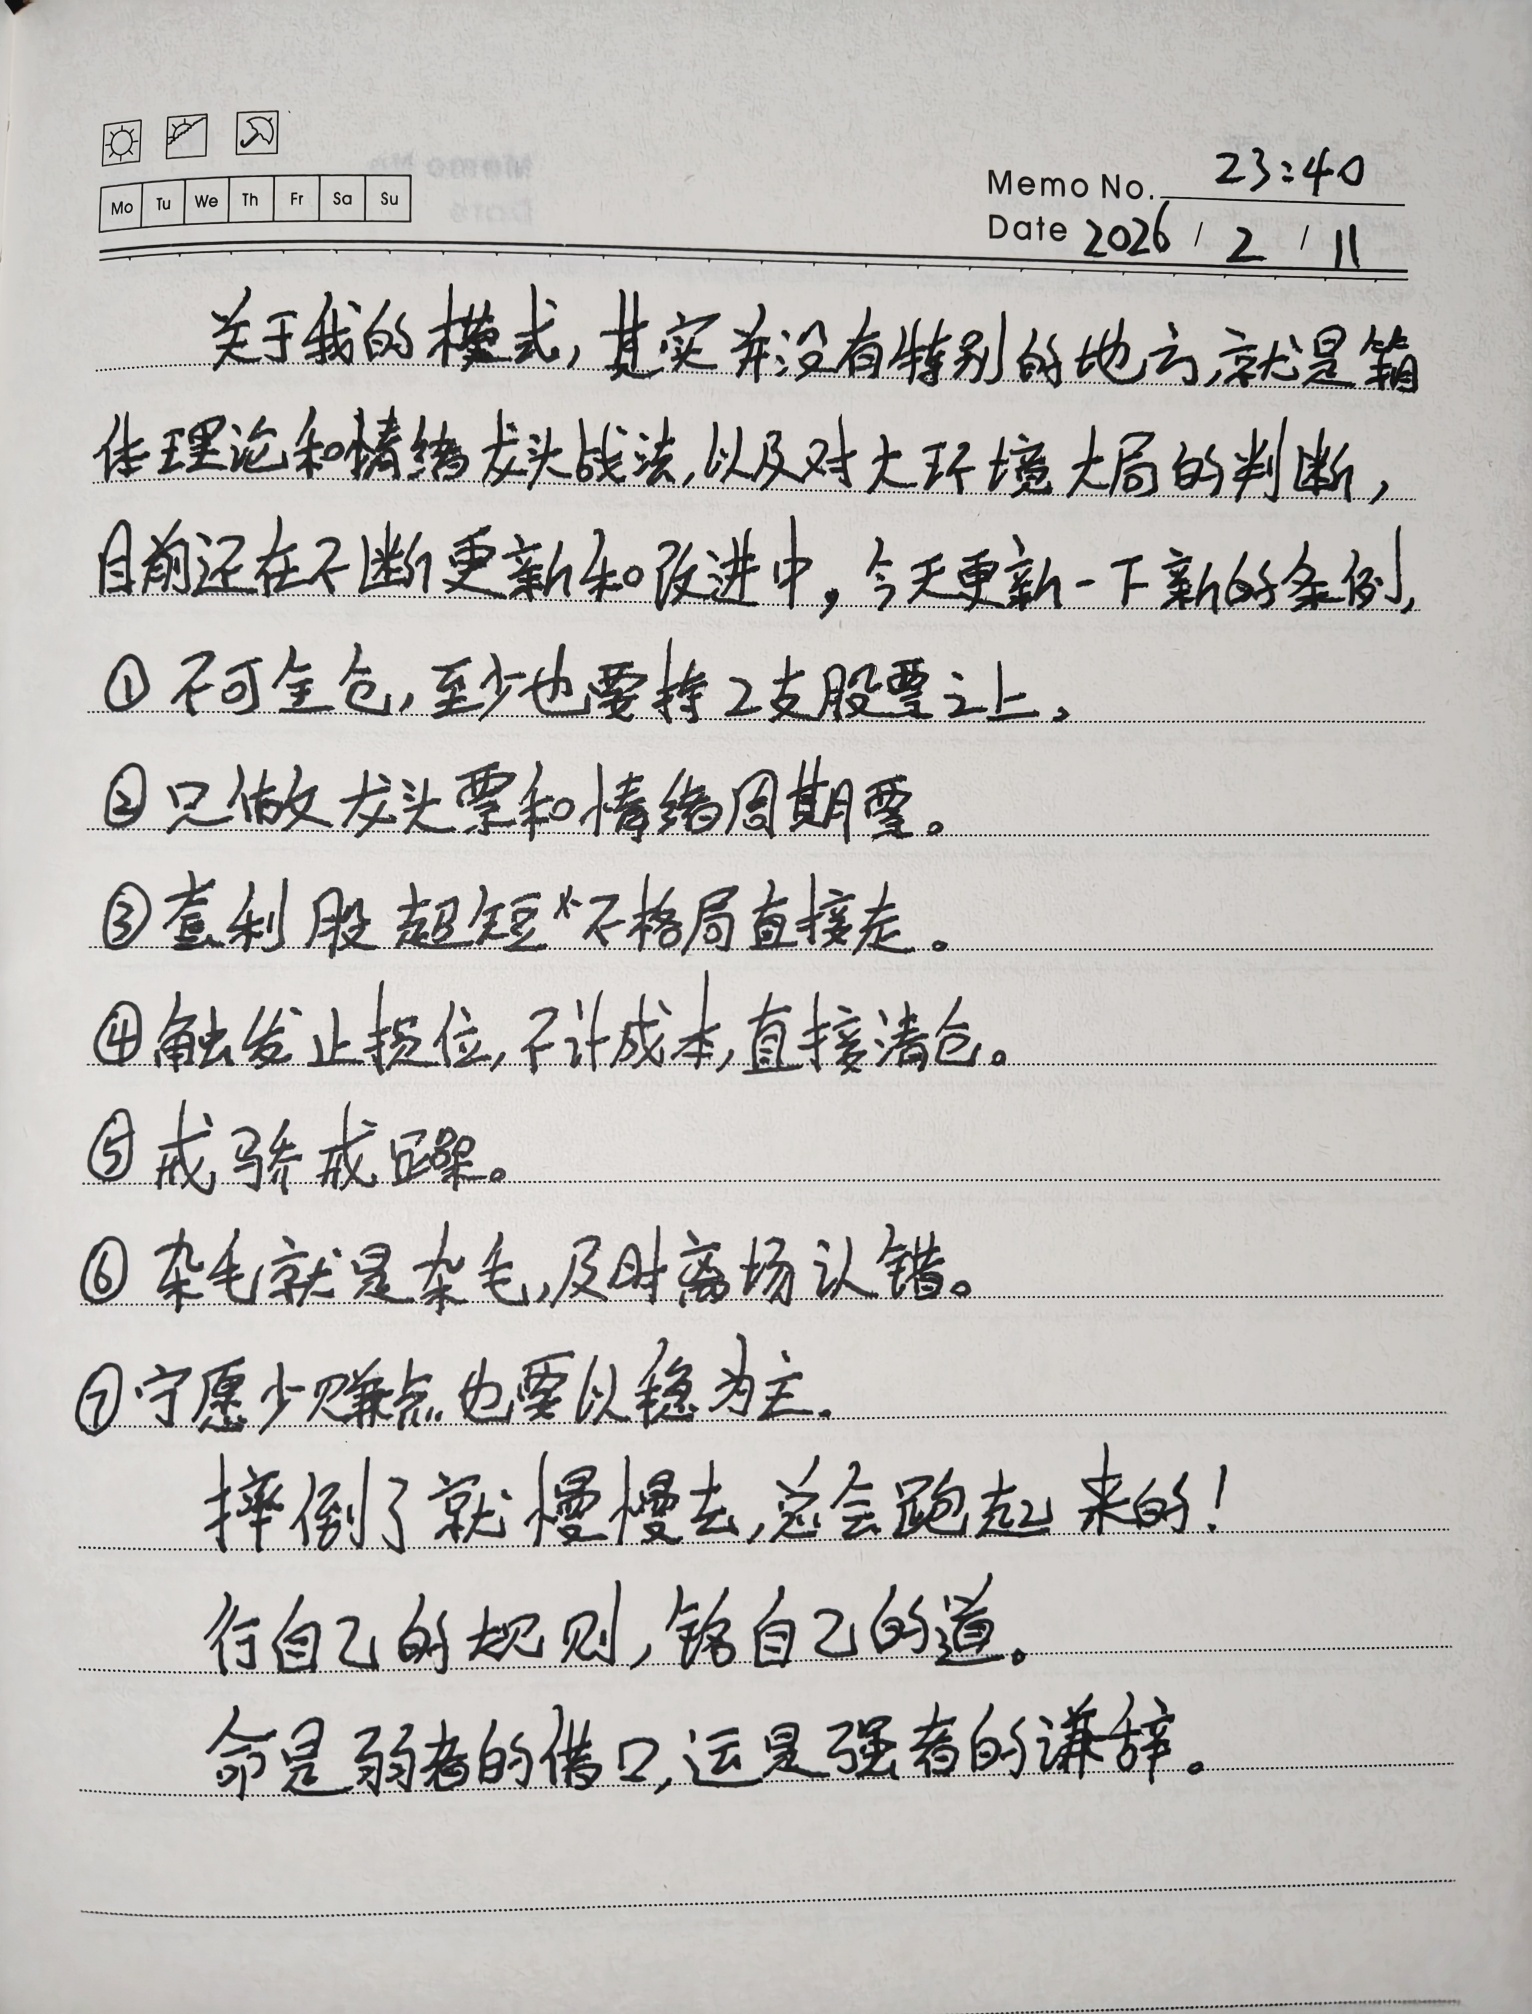 Memo No. 23:40
Mo Tu We Th Fr Sa Su
Date 2026 / 2 / 11
关于我的模式,其实并没有特别的地方,就是箱
体理论和情绪龙头战法,以及对大环境大局的判断,
目前还在不断更新和改进中,今天更新一下新的条例,
①不可全仓,至少也要持2支股票之上,
②只做龙头票和情绪周期票。
③套利股超短不格局直接走。
④触发止损位,不计成本,直接清仓。
⑤戒骄戒躁。
⑥杂毛就是杂毛,及时离场认错。
⑦宁愿少赚点也要以稳为主.
摔倒了就慢慢去,总会跑起来的!
行自己的规则,铭自己的道。
命是弱者的借口,运是强者的谦辞。